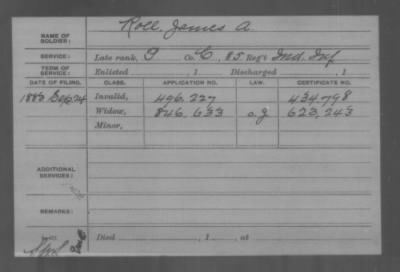 NAME OF SOLDIER: Roll, James A.
SERVICE: Late rank, P Co. C, 85 Reg't Ind. Inf
TERM OF SERVICE: Enlisted , 1 Discharged , 1
DATE OF FILING. CLASS. APPLICATION NO. LAW. CERTIFICATE NO.
1883 Sep 24 Invalid, 496,227 434,798
Widow, 846,633 o.g 623,243
Minor,
ADDITIONAL SERVICES:
REMARKS:
Died , 1 , at